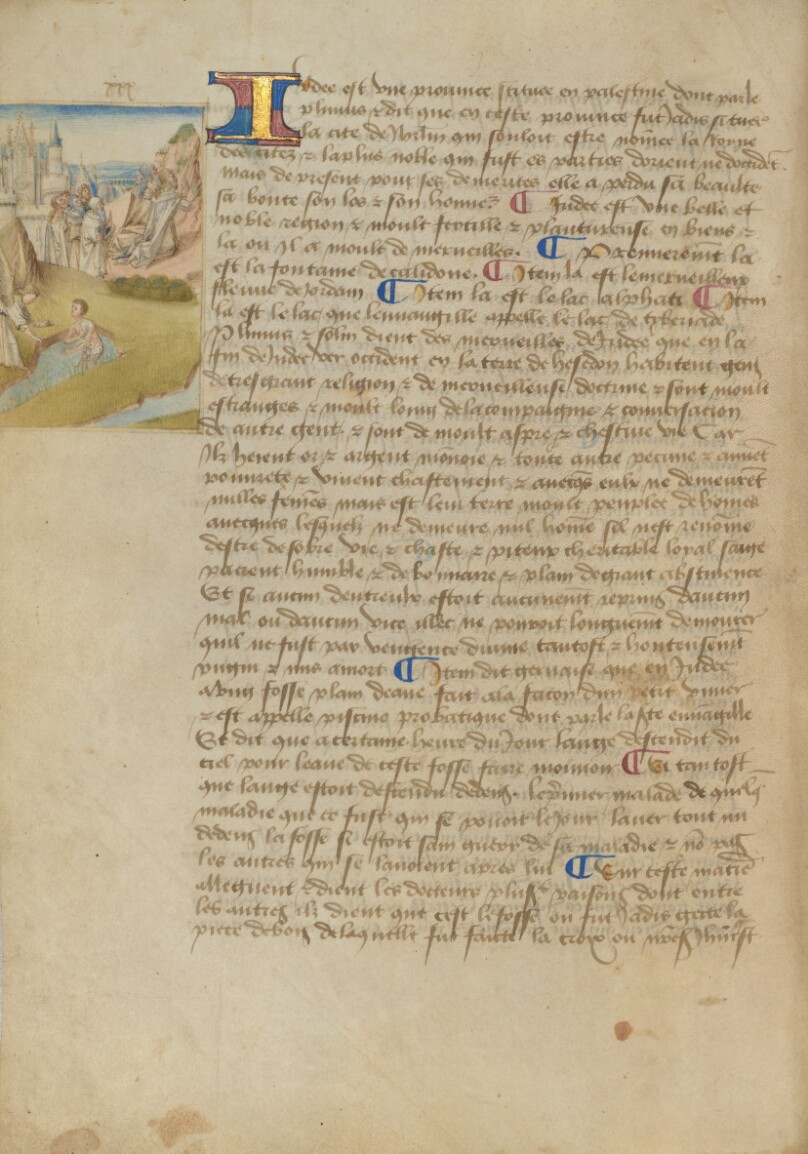 Iudee est vne prouince scituee en palestine dont parle
plinius & dit que en ceste prouince fut Jadis situee
la cite de Jhrlm qui souloit estre nomee la
des citez & la plus noble qui fust es parties dorient ne doccidet.
mais de present pour ses demerites elle a perdu sa beaulte
sa bonte son los & son honner ¶ Judee est vne belle et
noble region & moult fertille & plantureuse en biens &
la ou Jl a moult de merueilles. ¶ Premieremt la
est la fontaine de calidone. ¶ Item la est le merueilleux
fleuue de Jordain ¶ Item la est le lac alphati ¶ Item
la est le lac que leuuangille appelle le lac de tyberiade
Plinius & solin dient des merueilles de Judee que en la
fin de Judee ver occident en la terre de hesebon habitent gens
de tresgrant religion & de merueilleuse doctrine & sont moult
estranges & moult loing de la compaignie & conuersacion
de autre gent. & sont de moult aspre & chestiue vie Car
Jlz heient or & argent monoie & toute autre pecune & aimet
pourete & viuent chastement & auecqs eulx ne demeuret
nulles femes mais est leur terre moult peuplee de homes
auecques lesquelz ne demeure nul home sil nest renome
destre de sobre vie & chaste & piteux cheritable loyal saige
pacient humble & debonnaire & plain de grant abstinence
Et se aucun dentreulx estoit aucunemt reprins daucun
mal ou daucun vice illec ne pouroit longuemt demourer
quil ne fust par vengence diuine tantost & honteusemt
pugni & mis a mort ¶ Item dit geruaise que en Judee
a vng fosse plain deaue fait a la facon dun petit viuier
& est appelle piscine probatique dont parle la ste euuagille
Et dit que a certaine heure du Jour lange descendit du
ciel pour leaue de ceste fosse faire mouuoir ¶ Et tantost
que lange estoit descendu dedens. le pmier malade de quelq
maladie que ce fust qui se pouoit le Jour lauer tout nu
dedens la fosse Jl estoit sain & guery de sa maladie & no pas
les autres qui se lauoient apres lui ¶ Sur ceste matie
alleguent & dient les docteurs plusrs raisons dont entre
les autres ilz dient que cest le fosse ou fut Jadis gecte la
piece de bois de laquelle fut faicte la croix ou nres Jhucst